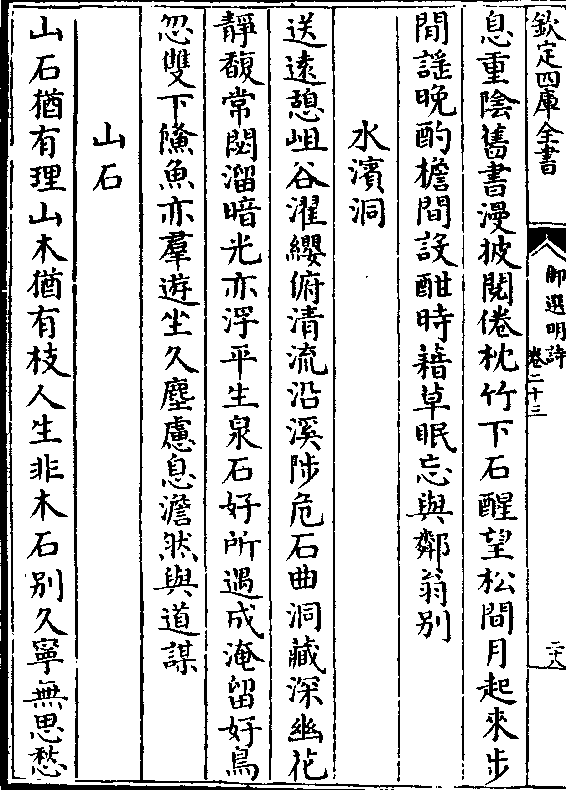 欽定四庫全書
御選明詩
卷二十三
二十八
息重陰舊書漫披閱倦枕竹下石醒望松間月起來步
閒謡晚酌檐間設酣時藉草眠忘與鄰翁别
水濱洞
送遠憩岨谷濯纓俯清流沿溪陟危石曲洞藏深幽花
靜馥常閟溜暗光亦浮平生泉石好所遇成淹留好鳥
忽雙下鯈魚亦羣遊坐久塵慮息澹然與道謀
山石
山石猶有理山木猶有枝人生非木石别久寧無思愁